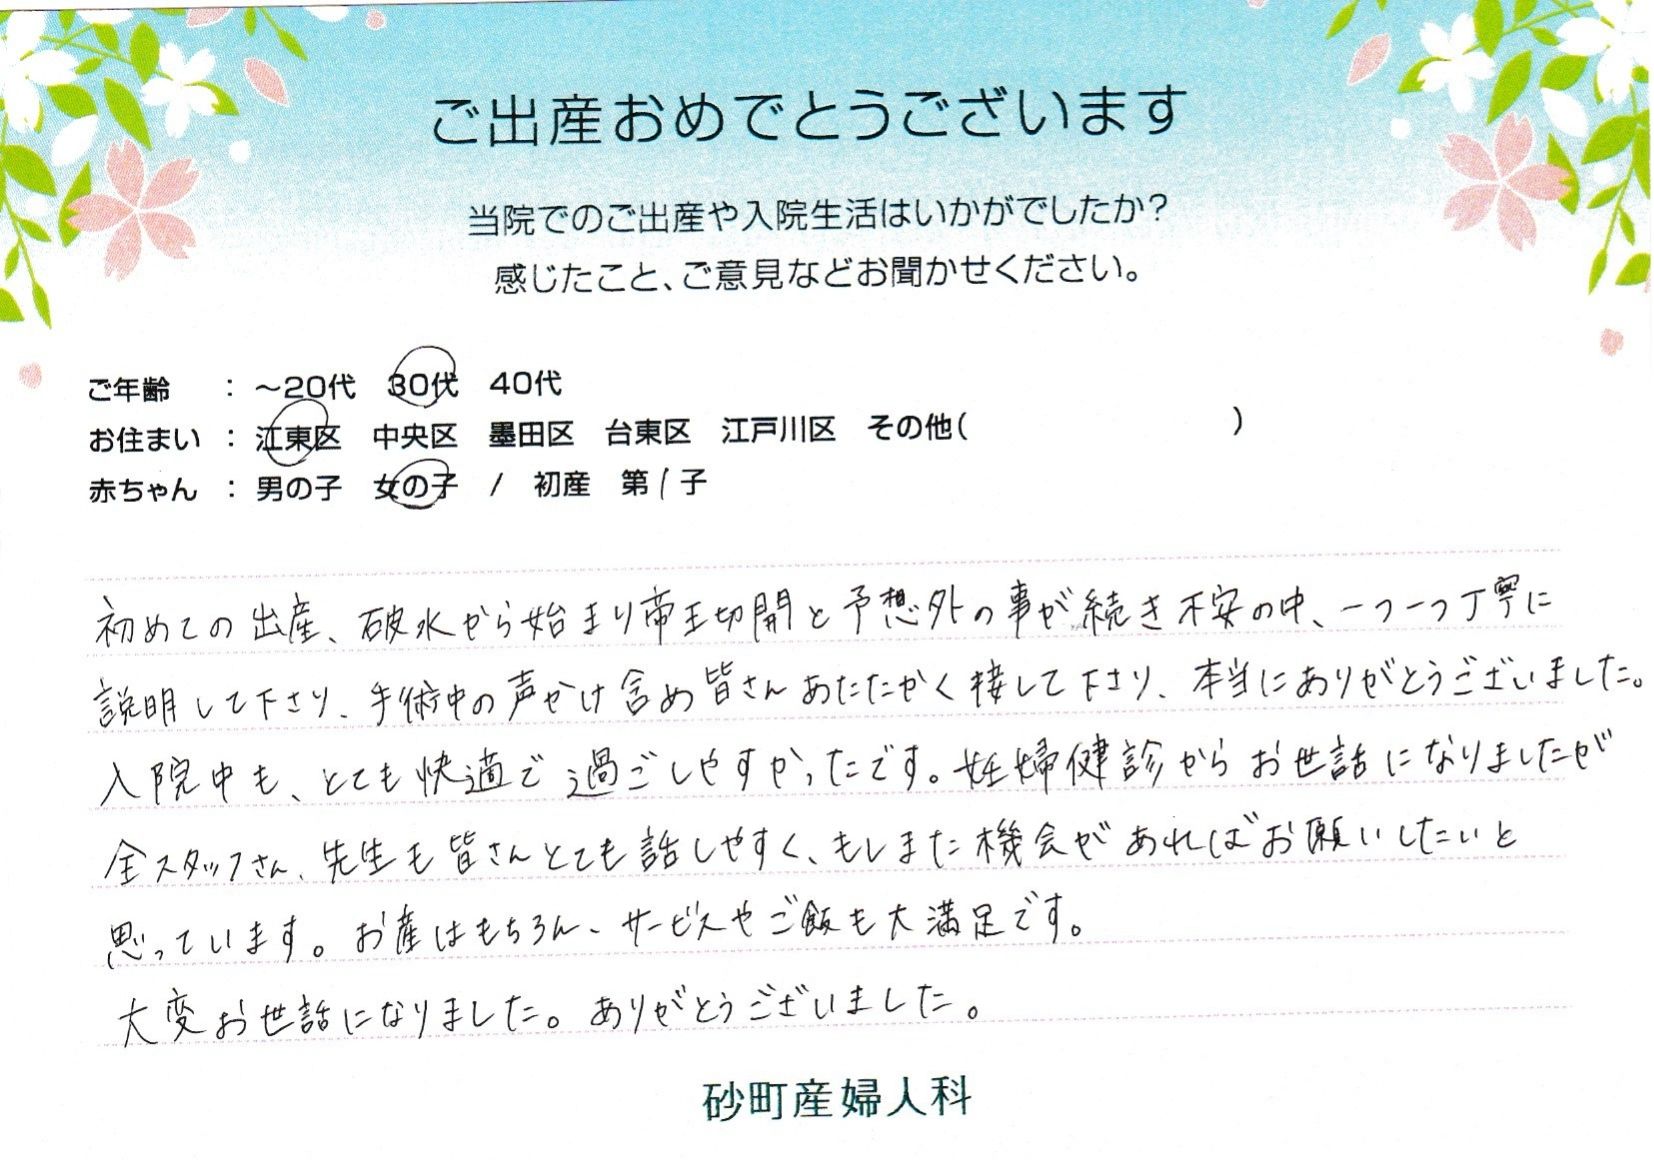 ご出産おめでとうございます
当院でのご出産や入院生活はいかがでしたか？
感じたこと、ご意見などお聞かせください。
ご年齢 ： ～20代 30代 40代
お住まい ： 江東区 中央区 墨田区 台東区 江戸川区 その他（ ）
赤ちゃん ： 男の子 女の子 / 初産 第1子
初めての出産、破水から始まり帝王切開と予想外の事が続き不安の中、一つ一つ丁寧に
説明して下さり、手術中の声かけ含め皆さんあたたかく接して下さり、本当にありがとうございました。
入院中も、とても快適で過ごしやすかったです。妊婦健診からお世話になりましたが
全スタッフさん、先生も皆さんとても話しやすく、もしまた機会があればお願いしたいと
思っています。お産はもちろん、サービスやご飯も大満足です。
大変お世話になりました。ありがとうございました。
砂町産婦人科